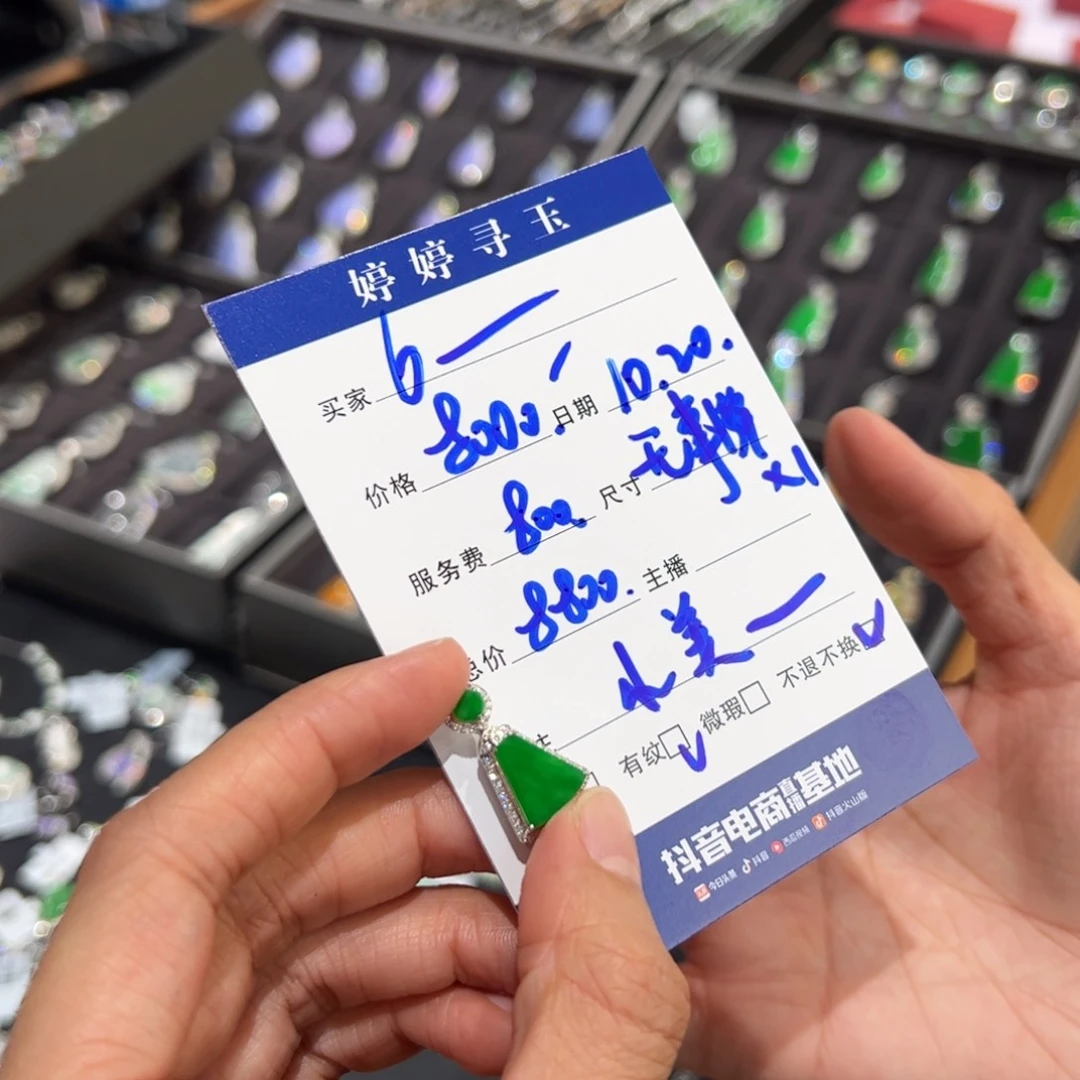 婷婷寻玉
买家 6一
价格 8000. 日期 10.20.
服务费 800 尺寸 无事牌x1
总价 8800. 主播
水美一
有纹 微瑕 不退不换
抖音电商直播基地
今日头条 抖音 西瓜视频 抖音火山版